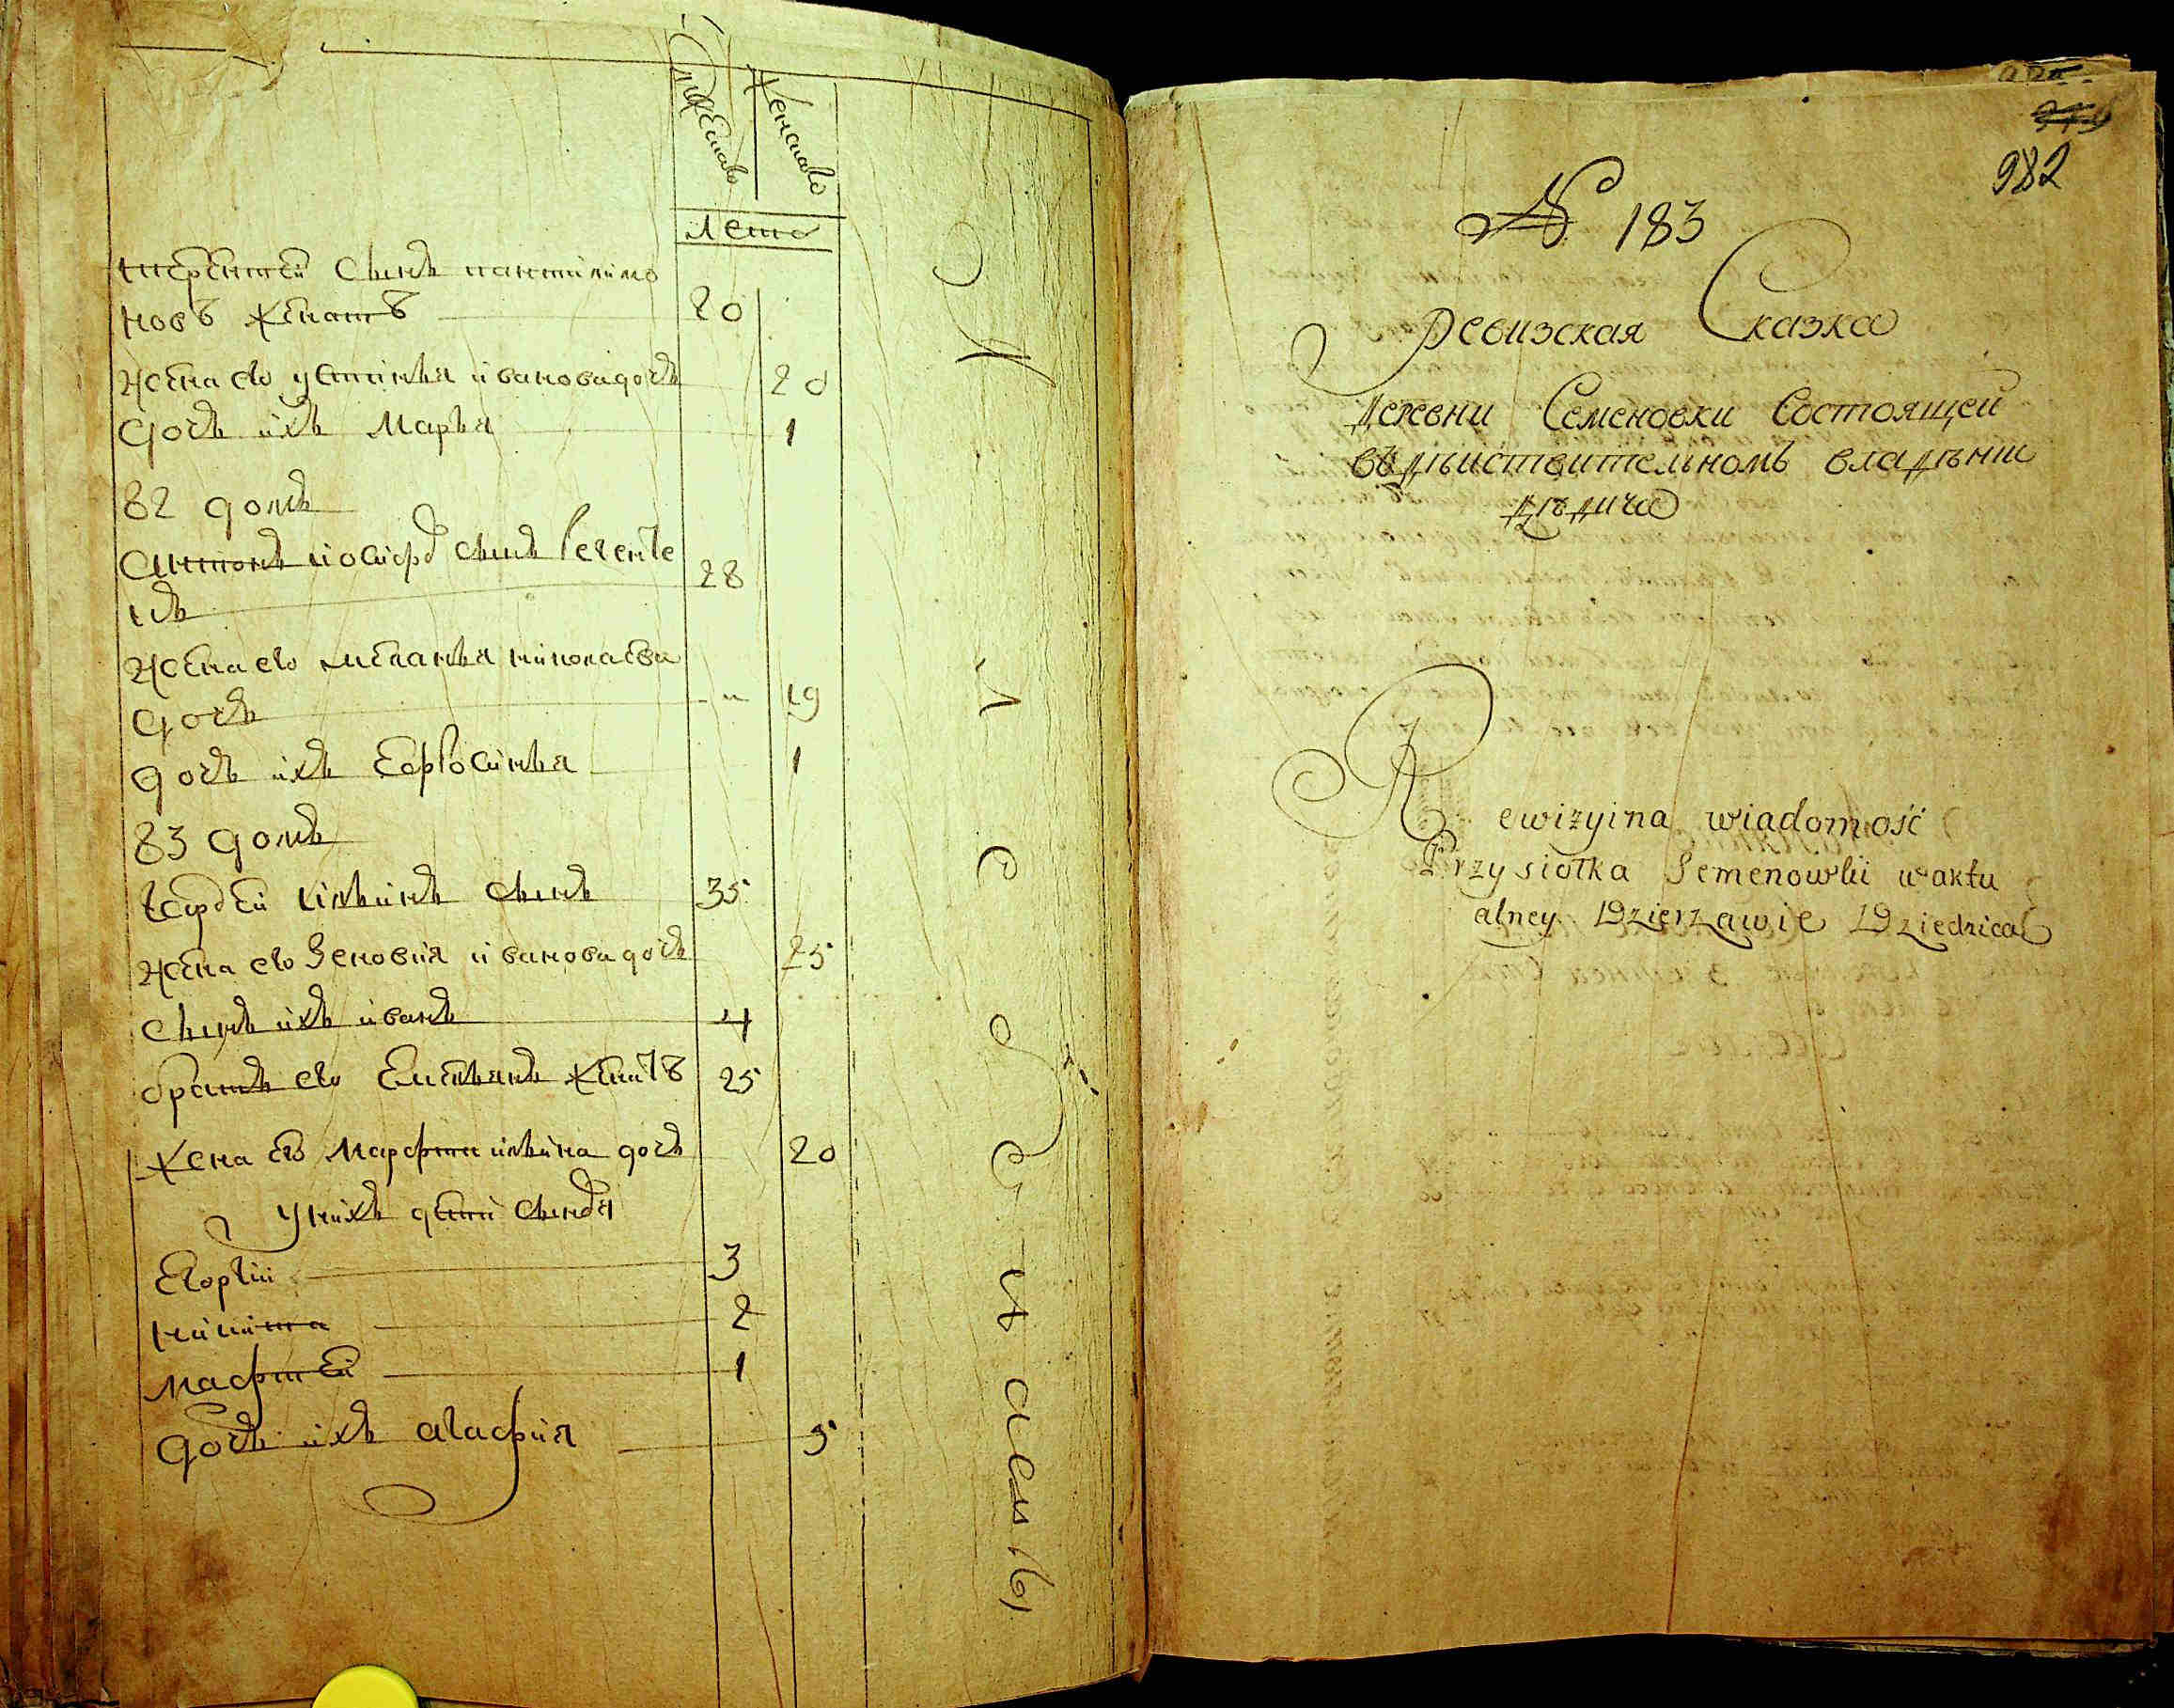 Женско
лета
терентей сынъ пантилимо
новъ женатъ 20
жена его устинья ивановадочь 20
дочь ихъ Марья 1
82 домъ
Антонъ иосифъ сынъ 28
жена его меланья николаева
дочь 19
дочь ихъ Евфросинья 1
83 домъ
сынъ 35
жена его Зеновия ивановадочь 25
сынъ ихъ иванъ 4
братъ его Емельянъ женатъ 25
жена его Марфа ильина дочь 20
унихъ дети сыновья
Егоргий 3
никита 2
Матфей 1
дочь ихъ агафия 5
982
№ 183
Ревизская Сказка
Деревни Семеновки Состоящей
въ дѣйствительномъ владѣнии
дѣдича
Rewizyina wiadomość
Przysiołka Semenowki w aktu
alney Dzierzawie Dziedzica